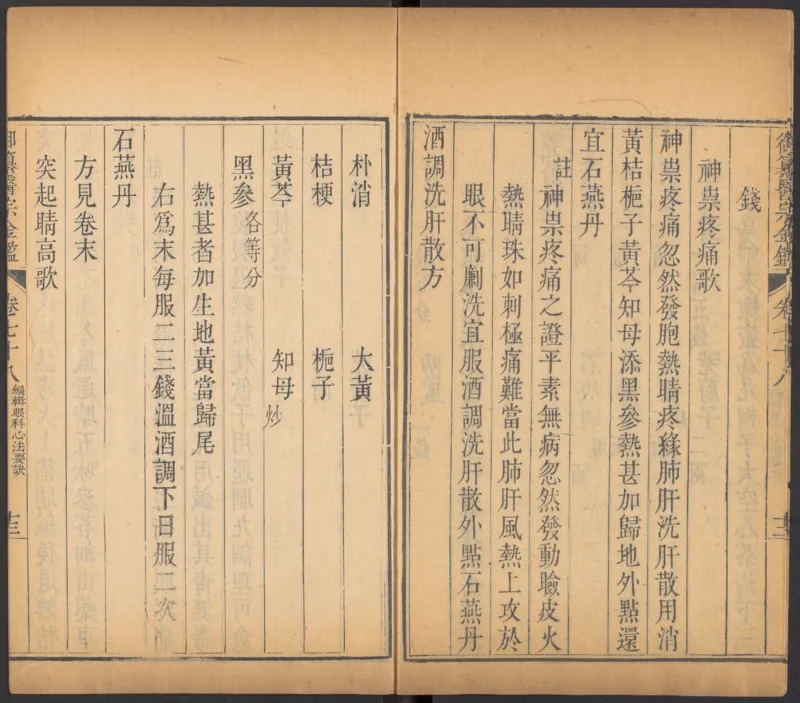 御纂醫宗金鑑 卷七十八
錢
神祟疼痛歌
神祟疼痛忽然發胞熱睛疼緣肺肝洗肝散用消
黃桔梔子黃芩知母添黑參熱甚加歸地外點還
宜石燕丹
註 神祟疼痛之證平素無病忽然發動瞼皮火
熱睛珠如刺極痛難當此肺肝風熱上攻於
眼不可劆洗宜服酒調洗肝散外點石燕丹
酒調洗肝散方
朴消 大黃
桔梗 梔子
黃芩 知母炒
黑參各等分
熱甚者加生地黃當歸尾
右爲末每服二三錢溫酒調下日服二次
石燕丹
方見卷末
突起睛高歌
御纂醫宗金鑑 卷七十八 編輯眼科心法要訣